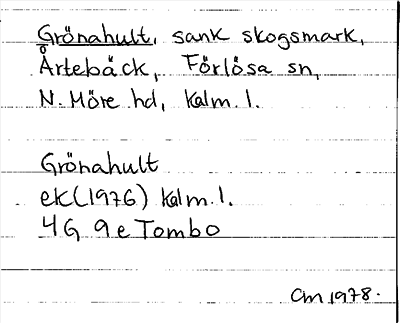 Grönahult, sank skogsmark,
Årtebäck, Förlösa sn,
N. Möre hd, Kalm. l.
Grönahult
ek (1976) Kalm. l.
4G 9e Tombo
CM 1978.